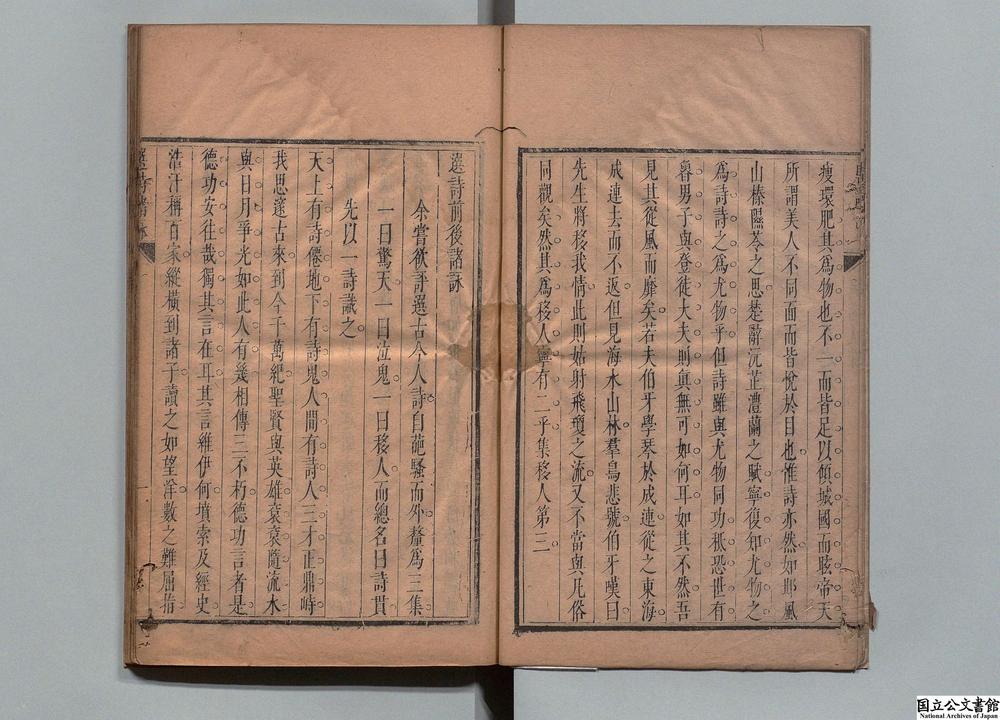 瘦環肥其為物也不一而皆足以傾城國而眩帝天
所謂美人不同面而皆悅於目也惟詩亦然如邶風
山榛隰苓之思楚辭沅芷澧蘭之賦寧復知尤物之
為詩詩之為尤物乎但詩雖與尤物同功秪恐世有
魯男子與登徒大夫則眞無可如何耳如其不然吾
見其從風而靡矣若夫伯牙學琴於成連從之東海
成連去而不返但見海水山林羣鳥悲號伯牙嘆曰
先生將移我情此則姑射飛瓊之流又不當與凡俗
同觀矣然其為移人寧有二乎集移人第三
選詩前後諸詠
余嘗欲評選古今人詩自葩騷而外釐為三集
一曰驚天一曰泣鬼一曰移人而總名曰詩貫
先以一詩識之
天上有詩僊地下有詩鬼人間有詩人三才正鼎峙
我思邃古來到今千萬紀聖賢與英雄袞袞隨流水
與日月爭光如此人有幾相傳三不朽德功言者是
德功安往哉獨其言在耳其言維伊何墳索及經史
浩汗稱百家縱橫到諸子讀之如望洋數之難屈指
選詩諸詠
一
国立公文書館
National Archives of Japan